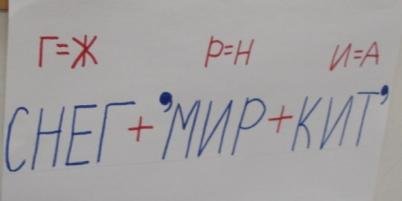 Г=Ж Р=Н И=А
СНЕГ+'МИР+КИТ'